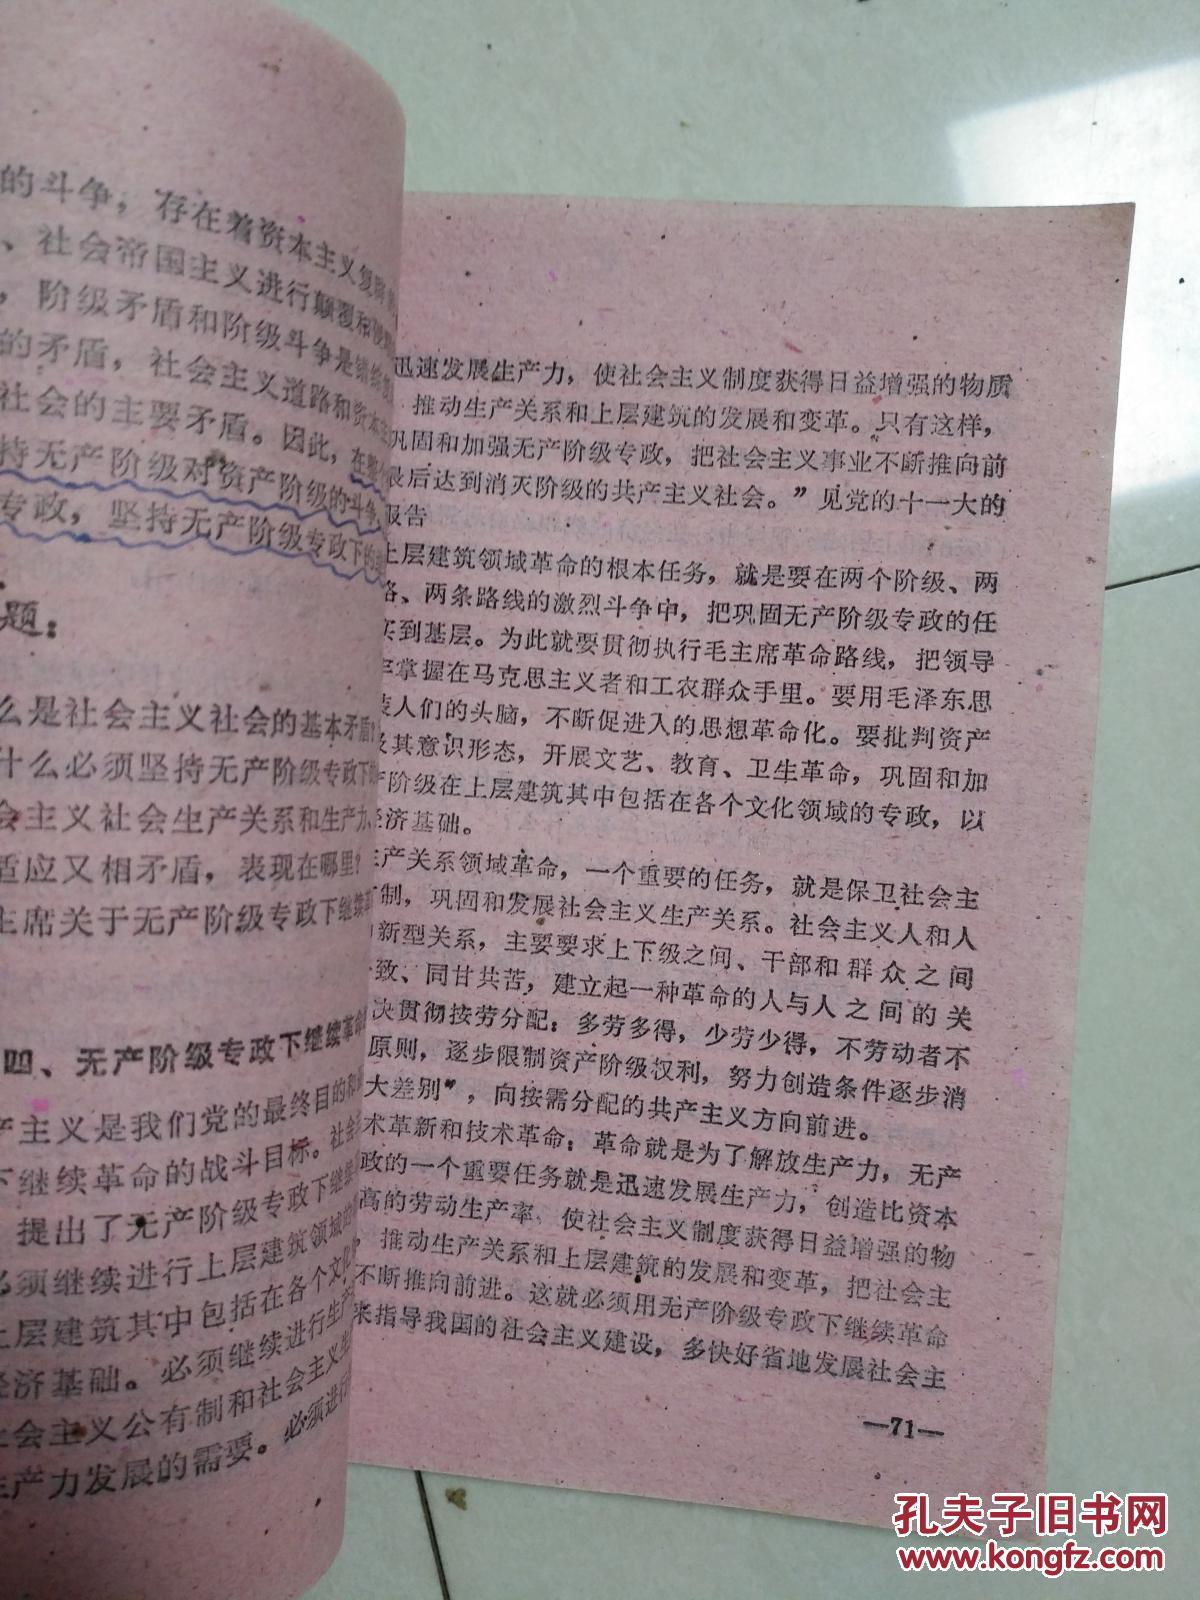 的斗争，存在着资本主义复辟
、社会帝国主义进行颠覆和侵
，阶级矛盾和阶级斗争是错综
的矛盾，社会主义道路和资本主
社会的主要矛盾。因此，在整个
持无产阶级对资产阶级的斗争
专政，坚持无产阶级专政下的
题：
么是社会主义社会的基本矛盾？
什么必须坚持无产阶级专政下的
会主义社会生产关系和生产力、
适应又相矛盾，表现在哪里？
主席关于无产阶级专政下继续革
四、无产阶级专政下继续革命
产主义是我们党的最终目的和
下继续革命的战斗目标。社会
提出了无产阶级专政下继续
必须继续进行上层建筑领域的
上层建筑其中包括在各个文化
经济基础。必须继续进行生产
社会主义公有制和社会主义生
生产力发展的需要。必须进行
迅速发展生产力，使社会主义制度获得日益增强的物质
推动生产关系和上层建筑的发展和变革。只有这样，
巩固和加强无产阶级专政，把社会主义事业不断推向前
最后达到消灭阶级的共产主义社会。”见党的十一大的
报告
上层建筑领域革命的根本任务，就是要在两个阶级、两
路、两条路线的激烈斗争中，把巩固无产阶级专政的任
实到基层。为此就要贯彻执行毛主席革命路线，把领导
牢掌握在马克思主义者和工农群众手里。要用毛泽东思
装人们的头脑，不断促进人的思想革命化。要批判资产
及其意识形态，开展文艺、教育、卫生革命，巩固和加
产阶级在上层建筑其中包括在各个文化领域的专政，以
经济基础。
生产关系领域革命，一个重要的任务，就是保卫社会主
制，巩固和发展社会主义生产关系。社会主义人和人
新型关系，主要要求上下级之间、干部和群众之间
致、同甘共苦，建立起一种革命的人与人之间的关
决贯彻按劳分配：多劳多得，少劳少得，不劳动者不
原则，逐步限制资产阶级权利，努力创造条件逐步消
大差别”，向按需分配的共产主义方向前进。
术革新和技术革命：革命就是为了解放生产力，无产
政的一个重要任务就是迅速发展生产力，创造比资本
高的劳动生产率，使社会主义制度获得日益增强的物
推动生产关系和上层建筑的发展和变革，把社会主
不断推向前进。这就必须用无产阶级专政下继续革命
来指导我国的社会主义建设，多快好省地发展社会主
—71—
孔夫子旧书网
www.kongfz.com